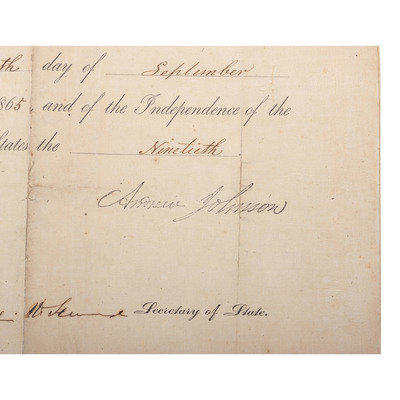 th day of September
865, and of the Independence of the
States the Ninetieth
Andrew Johnson
Secretary of State.